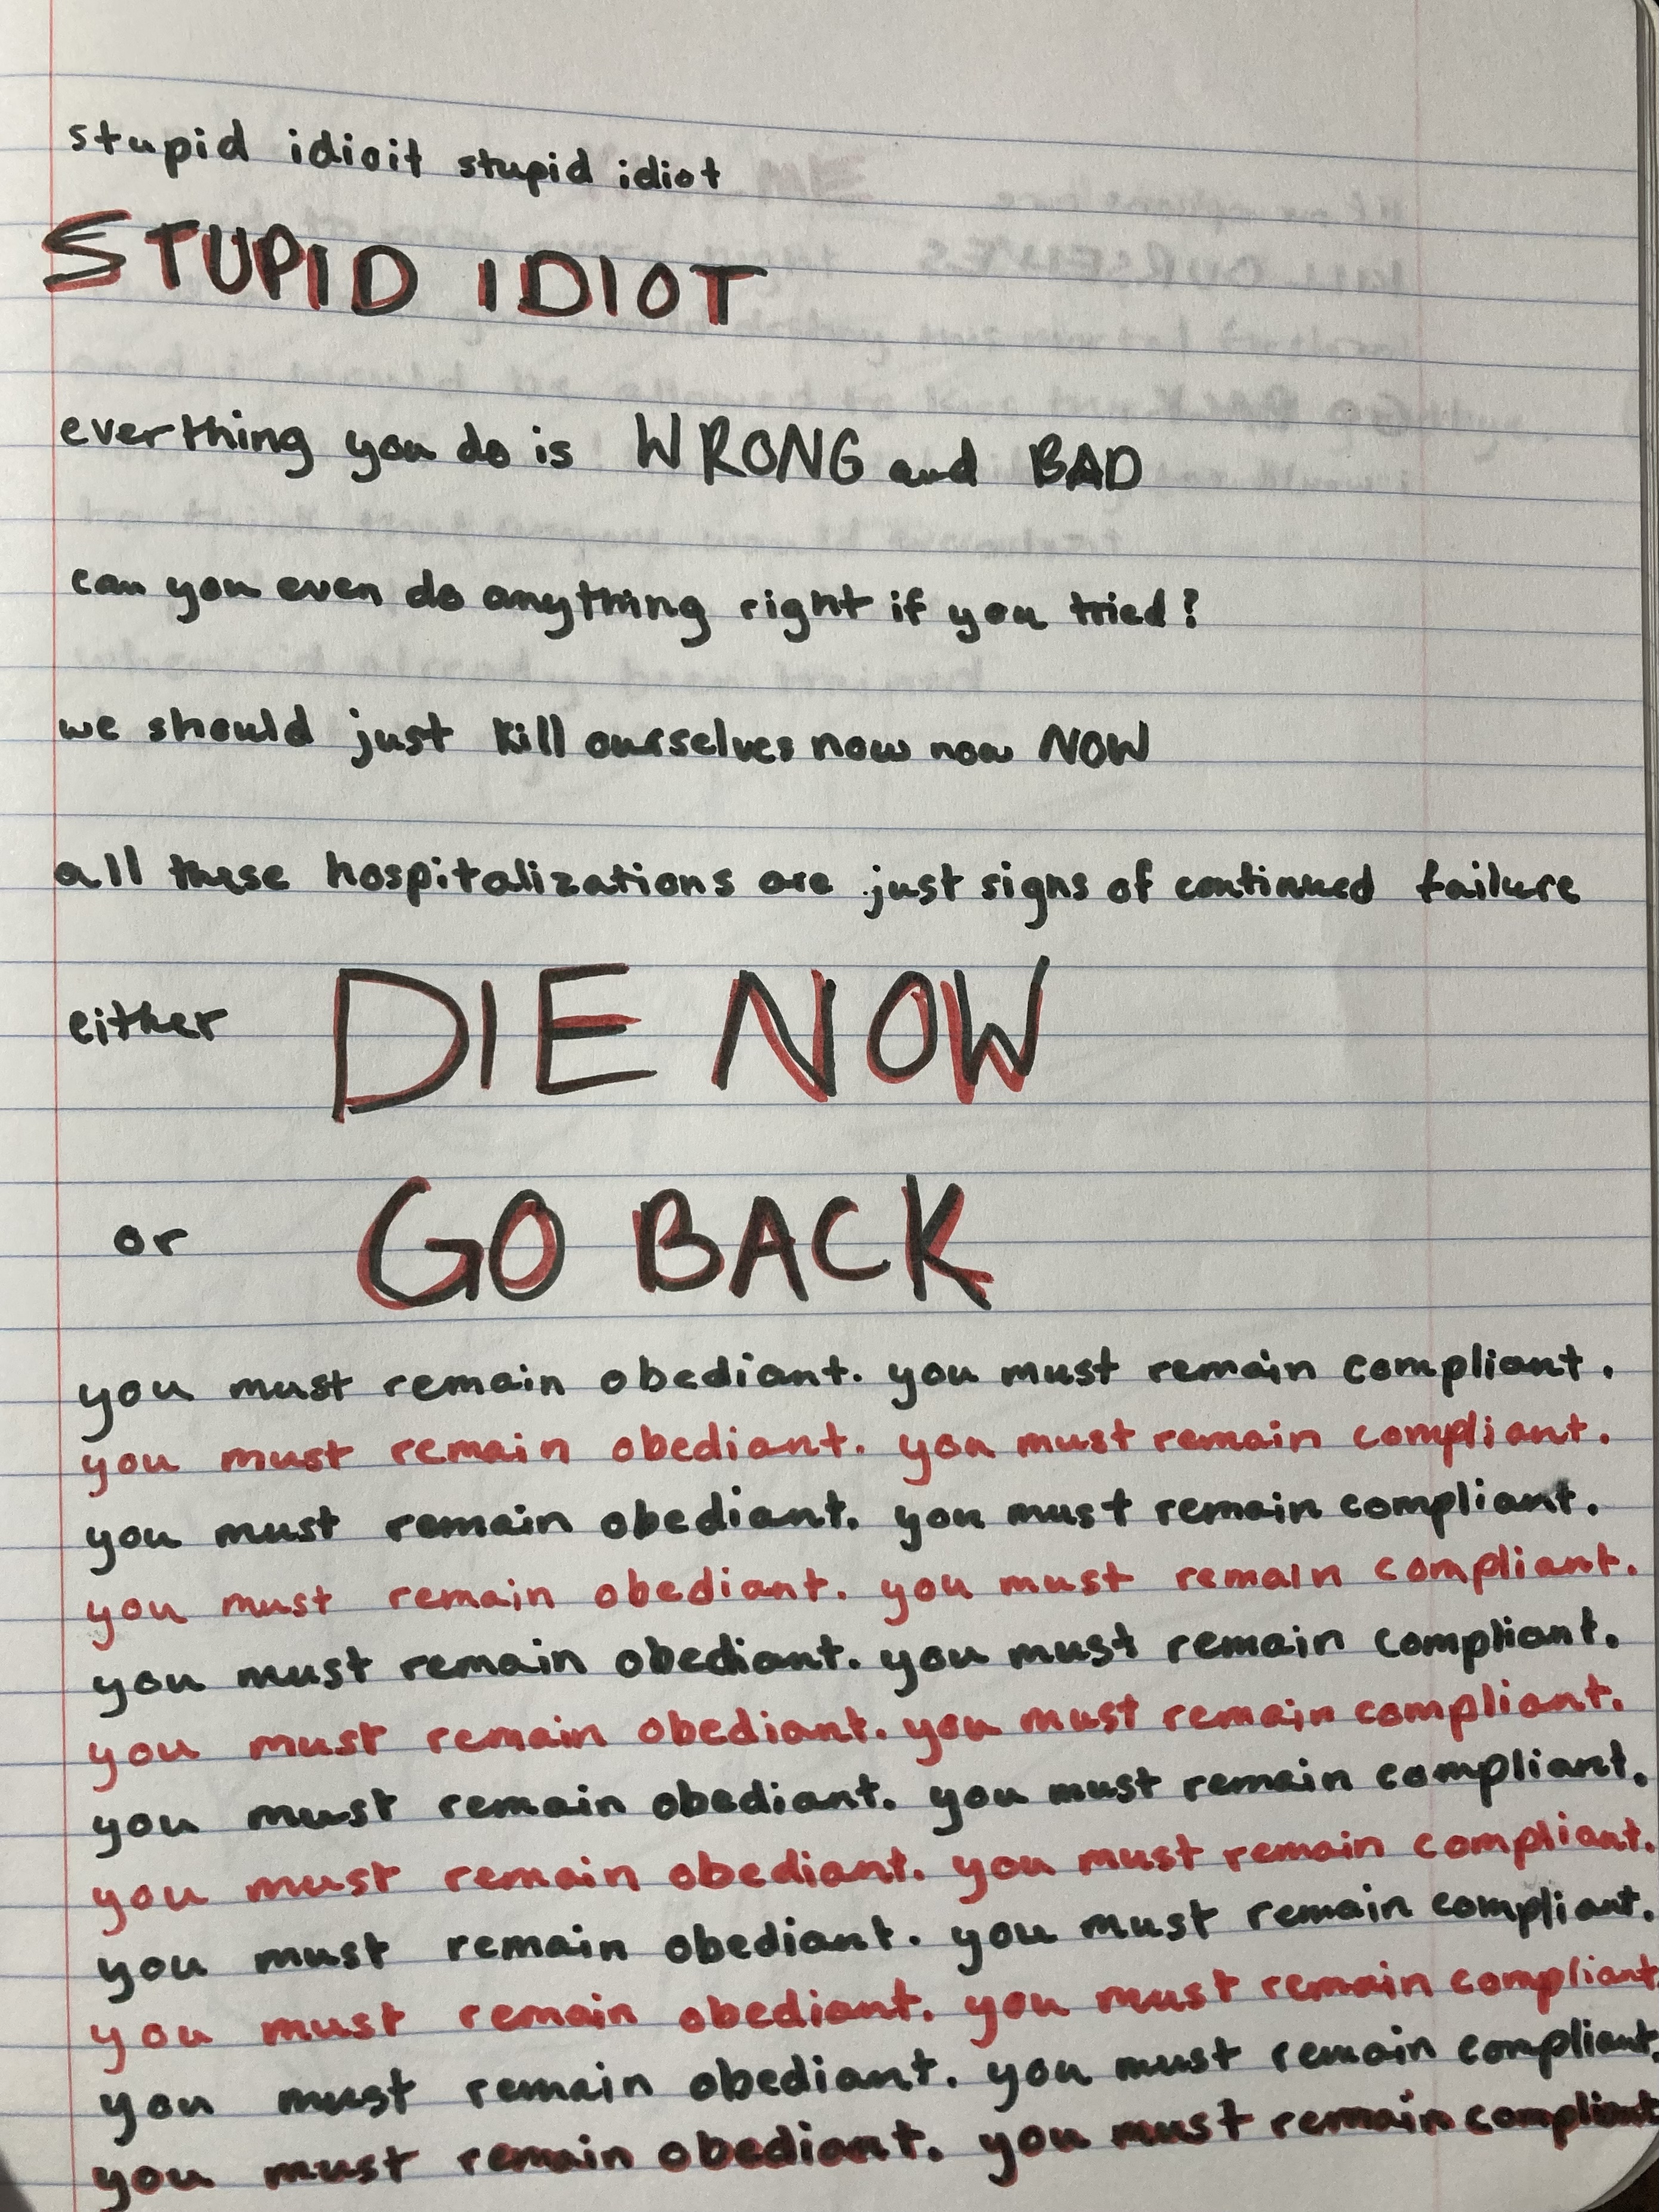 stupid idioit stupid idiot
STUPID IDIOT
everthing you do is WRONG and BAD
can you even do anything right if you tried?
we should just kill ourselves now now NOW
all these hospitalizations are just signs of continued failure
either DIE NOW
or GO BACK
you must remain obediant. you must remain compliant.
you must remain obediant. you must remain compliant.
you must remain obediant. you must remain compliant.
you must remain obediant. you must remain compliant.
you must remain obediant. you must remain compliant.
you must remain obediant. you must remain compliant.
you must remain obediant. you must remain compliant.
you must remain obediant. you must remain compliant.
you must remain obediant. you must remain compliant.
you must remain obediant. you must remain compliant
you must remain obediant. you must remain compliant.
you must remain obediant. you must remain compliant